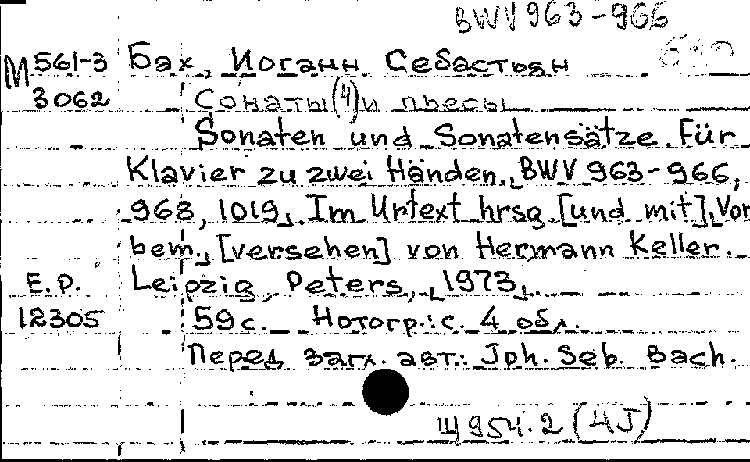 BWV 963-966
М 561-3 Бах, Иоганн Себастьян
3062 Сонаты (4) и пьесы
Sonaten und Sonatensätze für
Klavier zu zwei Händen, BWV 963-966,
963, 1019, Im Urtext hrsg. [und mit] Vor
bem., [versehen] von Hermann Keller.
E.P. Leipzig, Peters, 1973.
12305 59 с. Нотогр.: с. 4 обл.
Перед загл. авт.: Joh. Seb. Bach.
Щ 954.2 (4J)